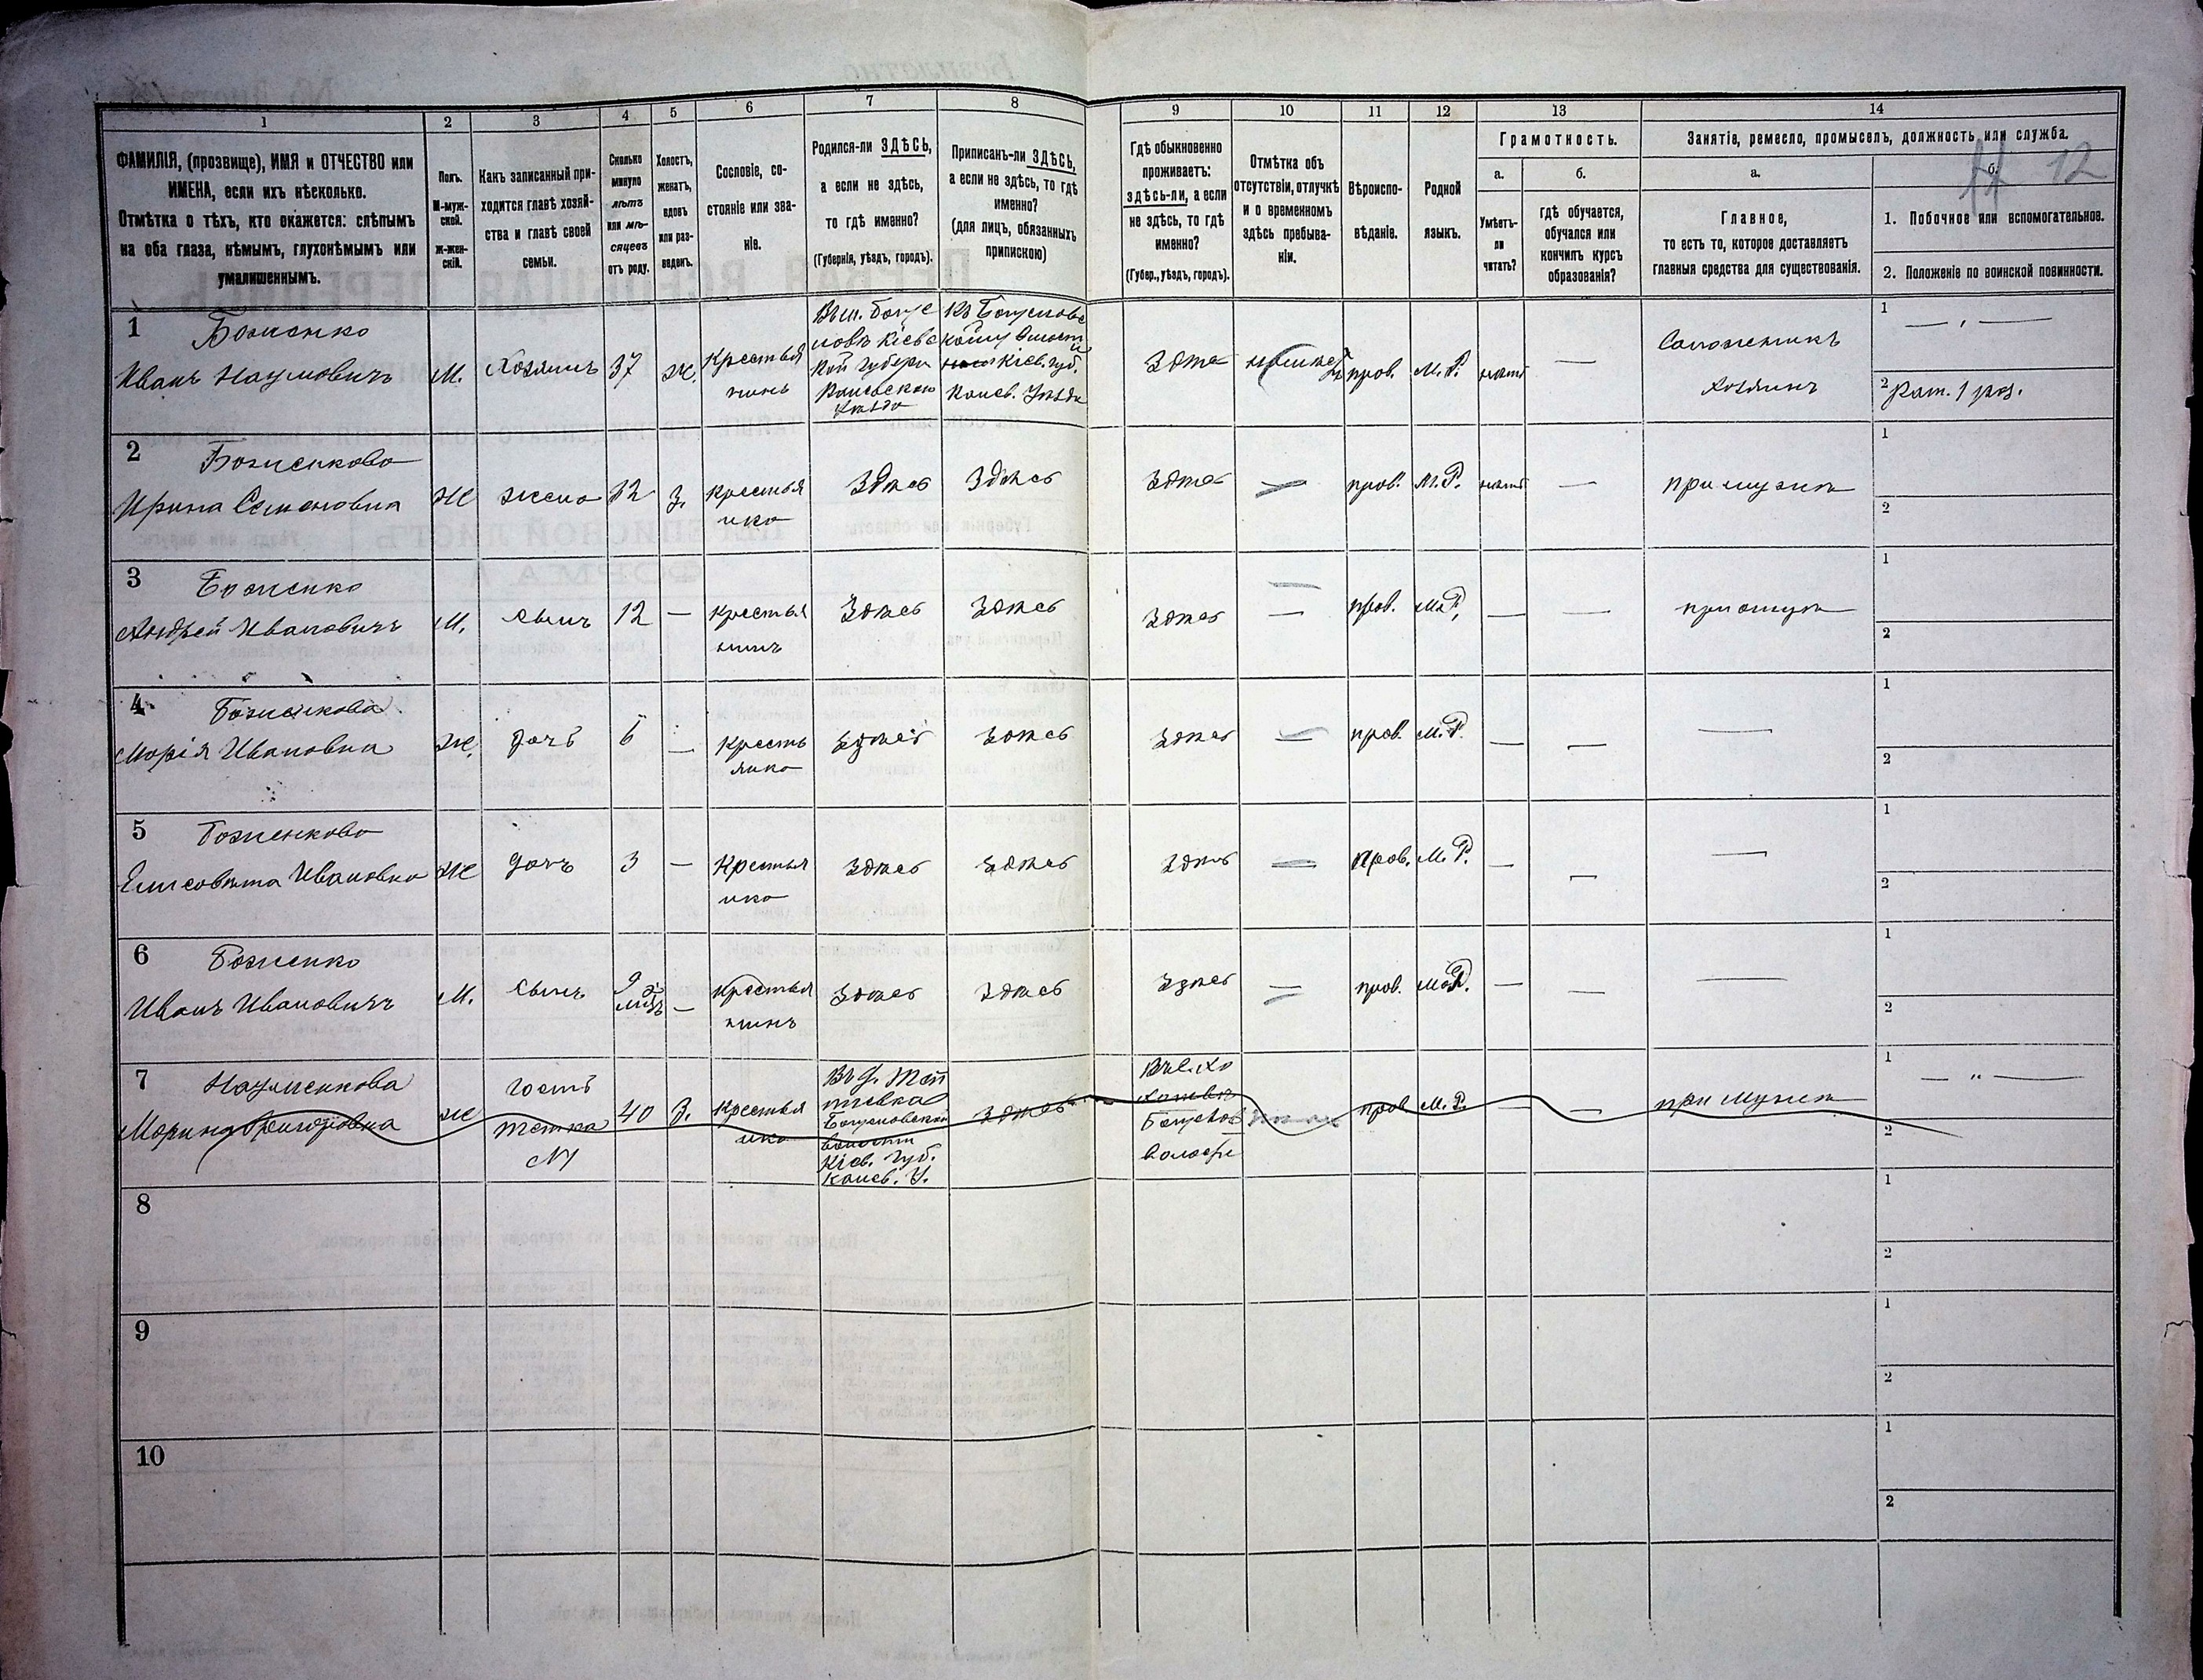 1 2 3 4 5 6 7 8 9 10 11 12 13 14
ФАМИЛІЯ, (прозвище), ИМЯ и ОТЧЕСТВО или
ИМЕНА, если ихъ нѣсколько.
Отмѣтка о тѣхъ, кто окажется: слѣпымъ
на оба глаза, нѣмымъ, глухонѣмымъ или
умалишеннымъ.
Полъ.
М-муж-
ской.
ж-жен-
скій.
Какъ записанный при-
ходится главѣ хозяй-
ства и главѣ своей
семьи.
Сколько
минуло
лѣтъ
или мѣ-
сяцевъ
отъ роду.
Холостъ,
женатъ,
вдовъ
или раз-
веденъ.
Сословіе, со-
стояніе или зва-
ніе.
Родился-ли ЗДѢСЬ,
а если не здѣсь,
то гдѣ именно?
(Губернія, уѣздъ, городъ).
Приписанъ-ли ЗДѢСЬ,
а если не здѣсь, то гдѣ
именно?
(для лицъ, обязанныхъ
припискою)
Гдѣ обыкновенно
проживаетъ:
здѣсь-ли, а если
не здѣсь, то гдѣ
именно?
(Губер., уѣздъ, городъ).
Отмѣтка объ
отсутствіи, отлучкѣ
и о временномъ
здѣсь пребыва-
ніи.
Вѣроиспо-
вѣданіе.
Родной
языкъ.
Грамотность.
а.
Умѣетъ-
ли
читать?
б.
гдѣ обучается,
обучался или
кончилъ курсъ
образованія?
Занятіе, ремесло, промыселъ, должность или служба.
а.
Главное,
то есть то, которое доставляетъ
главныя средства для существованія.
б.
12
1. Побочное или вспомогательное.
2. Положеніе по воинской повинности.
1 Боженко
Иванъ Наумовичъ
М.
Хозяинъ
37
ж.
Крестья
нинъ
Въ м. Богус
лавѣ Кіевс
кой Губерн
Каневскаго
Уѣзда
Къ Богуславс
кому
Кіев. губ.
Канев. Уѣзда
Здѣсь
пров.
М. Р.
нѣтъ
—
Сапожникъ
Хозяинъ
1
2 Рат. 1 раз.
2 Боженкова
Ирина Семеновна
Ж
жена
32
З.
Крестья
нка
Здѣсь
Здѣсь
Здѣсь
—
пров.
М. Р.
нѣтъ
—
при мужѣ
1
2
3 Боженко
Андрей Ивановичъ
М.
Сынъ
12
—
Крестья
нинъ
Здѣсь
Здѣсь
Здѣсь
—
пров.
М. Р.
—
—
при отцѣ
1
2
4 Боженкова
Марія Ивановна
Ж.
дочь
6
—
Кресть
янка
Здѣсь
Здѣсь
Здѣсь
—
пров.
М. Р.
—
—
—
1
2
5 Боженкова
Елисавѣта Ивановна
Ж
дочъ
3
—
Крестья
нка
Здѣсь
Здѣсь
Здѣсь
—
пров.
М. Р.
—
—
—
1
2
6 Боженко
Иванъ Ивановичъ
М.
Сынъ
9
—
Крестья
нинъ
Здѣсь
Здѣсь
Здѣсь
—
пров.
М. Р.
—
—
—
1
2
7 Науменкова
Марина Григоровна
Ж
гость
тетка
№1
40
З.
Крестья
нка
Богуславской
волости
Кіев. Губ.
Канев. У.
Здѣсь
Богуслав
пров
М. Р.
—
—
при мужѣ
1 — „ —
2
8
1
2
9
1
2
10
1
2